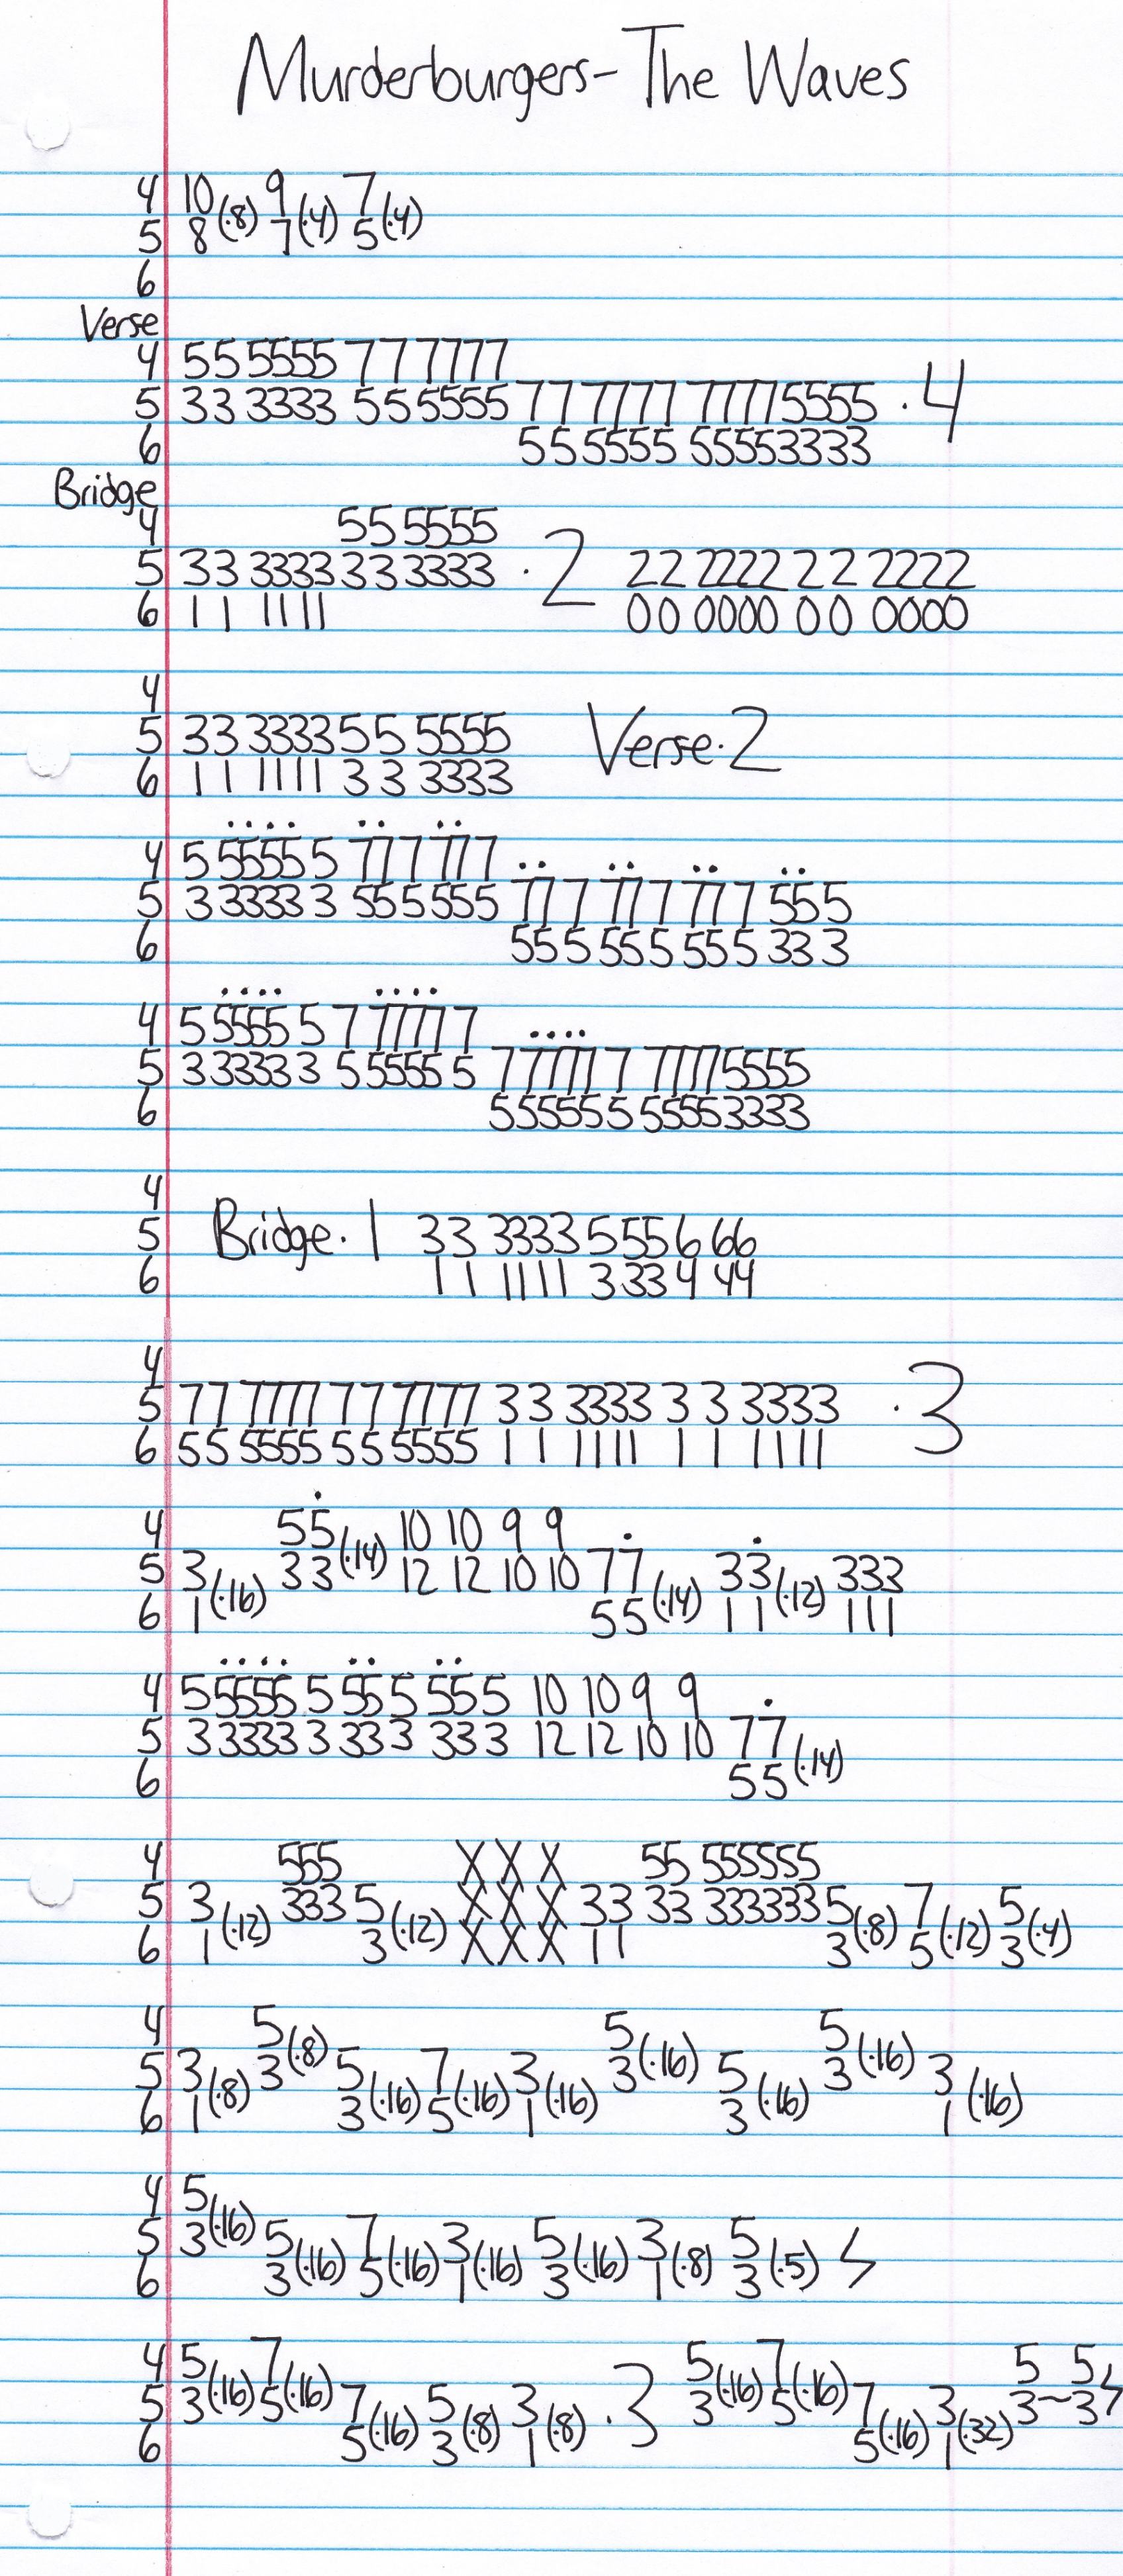 Murderburgers- The Waves
4 10 9 7
5 8 (·8) 7 (·4) 5 (·4)
6
Verse
4 55 5555 77 7777
5 33 3333 55 5555 77 7777 77775555 ·4
6 55 5555 55553333
Bridge
4 55 5555
5 33 3333 33 3333 ·2 22 2222 22 2222
6 11 1111 00 0000 00 0000
4
5 33 3333 55 5555 Verse·2
6 11 1111 33 3333
4 5 5555 5 77 7 77 7
5 3 3333 3 55 5 55 5 77 7 77 7 77 7 55 5
6 55 5 55 5 55 5 33 3
4 5 5555 5 7 7777 7
5 3 3333 3 5 5555 5 7 7777 7 77775555
6 5 5555 5 55553333
4
5 Bridge·1 33 3333 555 666
6 11 1111 333 444
4
5 77 7777 77 7777 33 3333 33 3333 ·3
6 55 5555 55 5555 11 1111 11 1111
4 55 10 10 9 9
5 3 33 (·14) 12 12 10 10 77 33 333
6 1 (·16) 55 (·14) 11 (·12) 111
4 5 5555 5 55 5 55 5 10 10 9 9
5 3 3333 3 33 3 33 3 12 12 10 10 77
6 55 (·14)
4 555 X X X 55 555555
5 3 333 5 X X X 33 33 333333 5 7 5
6 1 (·12) 3 (·12) X X X 11 3 (·8) 5 (·12) 3 (·4)
4 5 5 5
5 3 3 (·8) 5 7 3 3 (·16) 5 3 (·16) 3
6 1 (·8) 3 (·16) 5 (·16) 1 (·16) 3 (·16) 1 (·16)
4 5
5 3 (·16) 5 7 3 5 3 5
6 3 (·16) 5 (·16) 1 (·16) 3 (·16) 1 (·8) 3 (·5)
4 5 7 5 7 5 5
5 3 (·16) 5 (·16) 7 5 3 ·3 3 (·16) 5 (·16) 7 3 3~3
6 5 (·16) 3 (·8) 1 (·8) 5 (·16) 1 (·32)